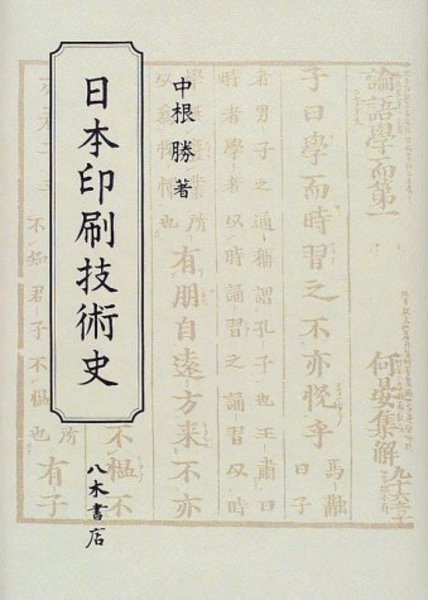 日本印刷技術史
中根 勝 著
八木書店
論語學而第一
何晏集解
子曰學而時習之不亦悦乎
馬融
曰子
者男子之通稱謂孔子也王肅曰
時者學者以時誦習之誦習以時
有朋自遠方來不亦
所
不知君子不愠也
不愠不
所
有子